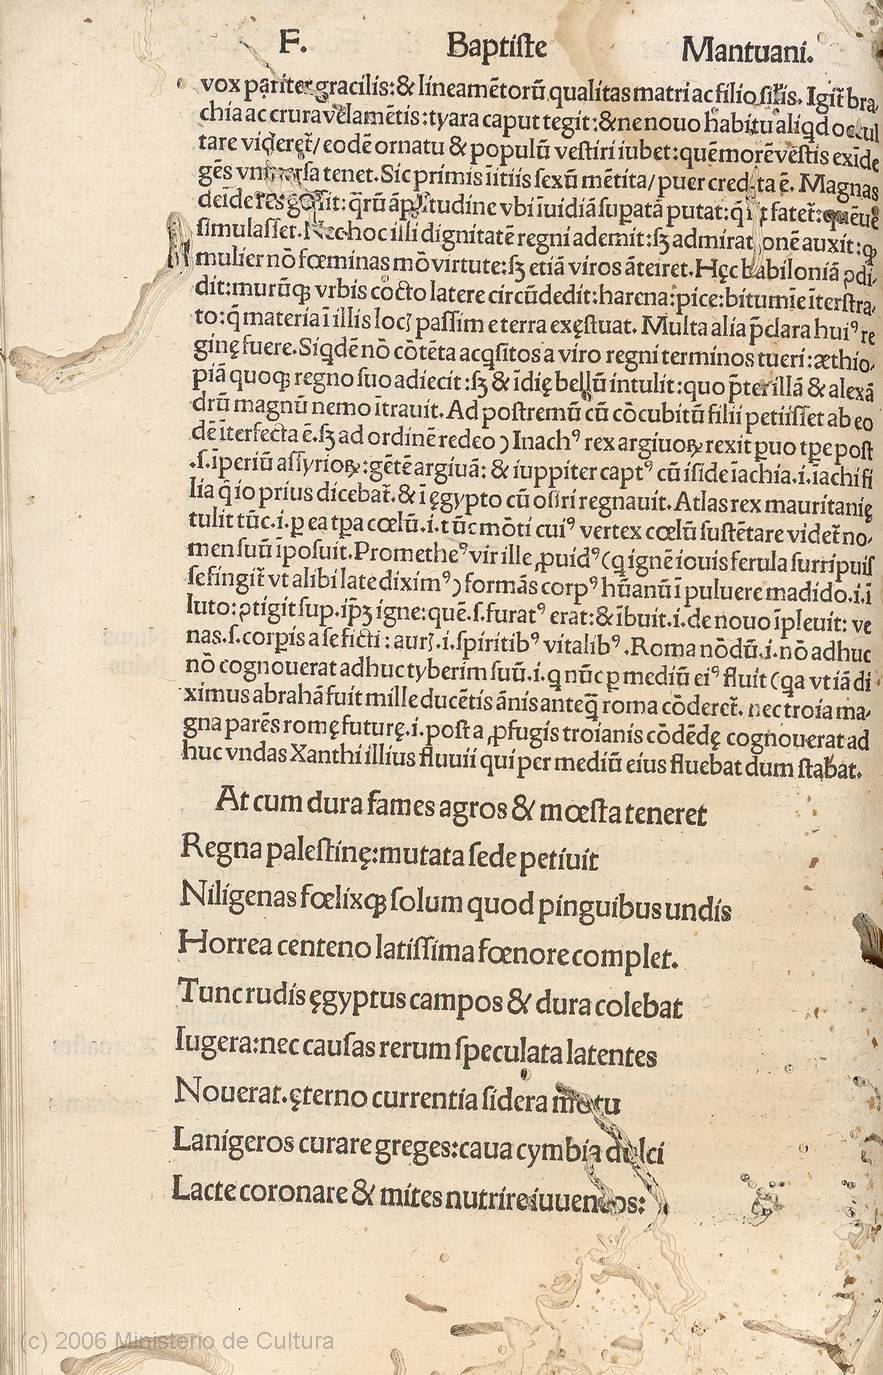 F. Baptiſte Mantuani.
vox pariter gracilis:& lineamẽtorũ qualitas matri ac filio ſilis. Igit̃ bra,
chia ac crura velamẽtis:tyara caput tegit:& ne nouo habitu aliqd occul
tare videret̃/eodẽ ornatu & populũ veſtiri iubet:quẽ morẽ veſtis exĩde
gẽs vniuerſa tenet. Sic primis ĩitiis ſexũ mẽtita/puer credita ẽ. Magnas
deĩde res geſſit:q̃rũ ãplitudine vbi ĩuidiã ſupatã putat:q̃ fatet̃:quẽue
ſimulaſſet. Nec hoc illi dignitatẽ regni ademit:ſꝫ admirationẽ auxit:ꝙ
mulier nõ fœminas mõ virtute:ſꝫ etiã viros ãteiret. Hęc babiloniã ꝯdi,
dit:murũꝗ vrbis cocto latere circũdedit:harena:pice:bitumĩe ĩterſtra,
to:q̃ materia ĩ illis locꝭ paſſim e terra exęſtuat. Multa alia p̃clara huiꝰ re
ginę fuere. Siqdẽ nõ cõtẽta acqſitos a viro regni terminos tueri:æthio,
piã quoqꝫ regno ſuo adiecit:ſꝫ & ĩdię bellũ intulit:quo p̃ter illã & alexã
drũ magnũ nemo ĩtrauit. Ad poſtremũ cũ cõcubitũ filii petiiſſet ab eo
dẽ ĩterfecta ẽ. ſꝫ ad ordinẽ redeo) Inachꝰ rex argiuoꝝ rexit ꝑuo tꝑe poſt
.ſ.ĩperiũ aſſyrioꝝ:gẽtẽ argiuã: & iuppiter captꝰ cũ iſide ĩachia.i.ĩachi fi
lia q̃ io prius dicebat̃.& ĩ ęgypto cũ oſiri regnauit. Atlas rex mauritanię
tulit tũc.i.ꝑ ea tꝑa cœlũ.i.tũc mõti cuiꝰ vertex cœlũ ſuſtẽtare videt̃ no,
men ſuũ ĩpoſuit. Prometheꝰ vir ille ꝓuidꝰ (q ignẽ iouis ferula ſurripuiſ
ſe fingit̃ vt alibi late diximꝰ) formãs corpꝰ hũanũ ĩ puluere madido.i.ĩ
luto:ꝯtigit ſup.ip̃ꝫ igne:quẽ.ſ.furatꝰ erat:& ĩbuit.i.de nouo ĩpleuit: ve
nas.ſ.corpis a ſe ficti: aurꝭ.i.ſpiritibꝰ vitalibꝰ. Roma nõdũ.i.nõ adhuc
nõ cognouerat adhuc tyberim ſuũ.i.q nũc ꝑ mediũ eiꝰ fluit (qa vt iã di
ximus abrahã fuit mille ducẽtis ãnis anteq̃ roma cõderet̃. nec troia ma,
gna parẽs romę futurę.i.poſt a ꝓfugis troianis cõdẽdę cognouerat ad
huc vndas Xanthi illius fluuii qui per mediũ eius fluebat dum ſtabat.
At cum dura fames agros & mœſta teneret
Regna paleſtinę:mutata ſede petiuit
Niligenas fœlixqꝫ ſolum quod pinguibus undis
Horrea centeno latiſſima fœnore complet.
Tunc rudis ęgyptus campos & dura colebat
Iugera:nec cauſas rerum ſpeculata latentes
Nouerat.ęterno currentia ſidera motu
Lanigeros curare greges:caua cymbia dulci
Lacte coronare & mites nutrire iuuencos:
(c) 2006 Ministerio de Cultura